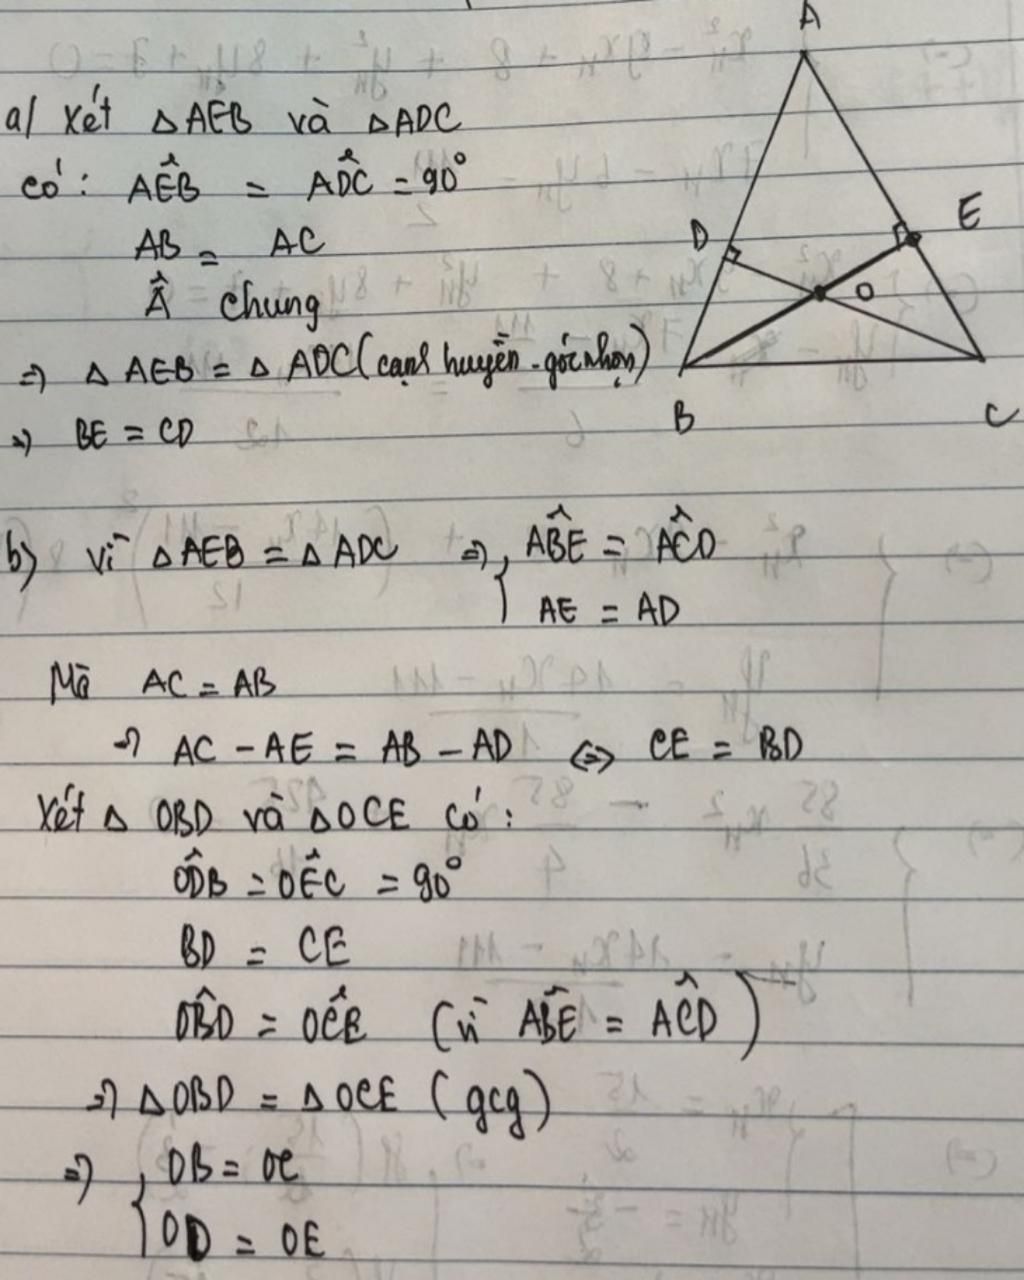 a/ Xét △AEB và △ADC
có: AÊB = AD̂C = 90°
AB = AC
Â chung
=> △AEB = △ADC (cạnh huyền - góc nhọn)
=> BE = CD
A
D
E
O
B
C
b) Vì △AEB = △ADC => { AB̂E = AĈD
AE = AD
Mà AC = AB
=> AC - AE = AB - AD <=> CE = BD
Xét △OBD và △OCE có:
OD̂B = OÊC = 90°
BD = CE
OB̂D = OĈE (vì AB̂E = AĈD)
=> △OBD = △OCE (gcg)
=> { OB = OC
OD = OE